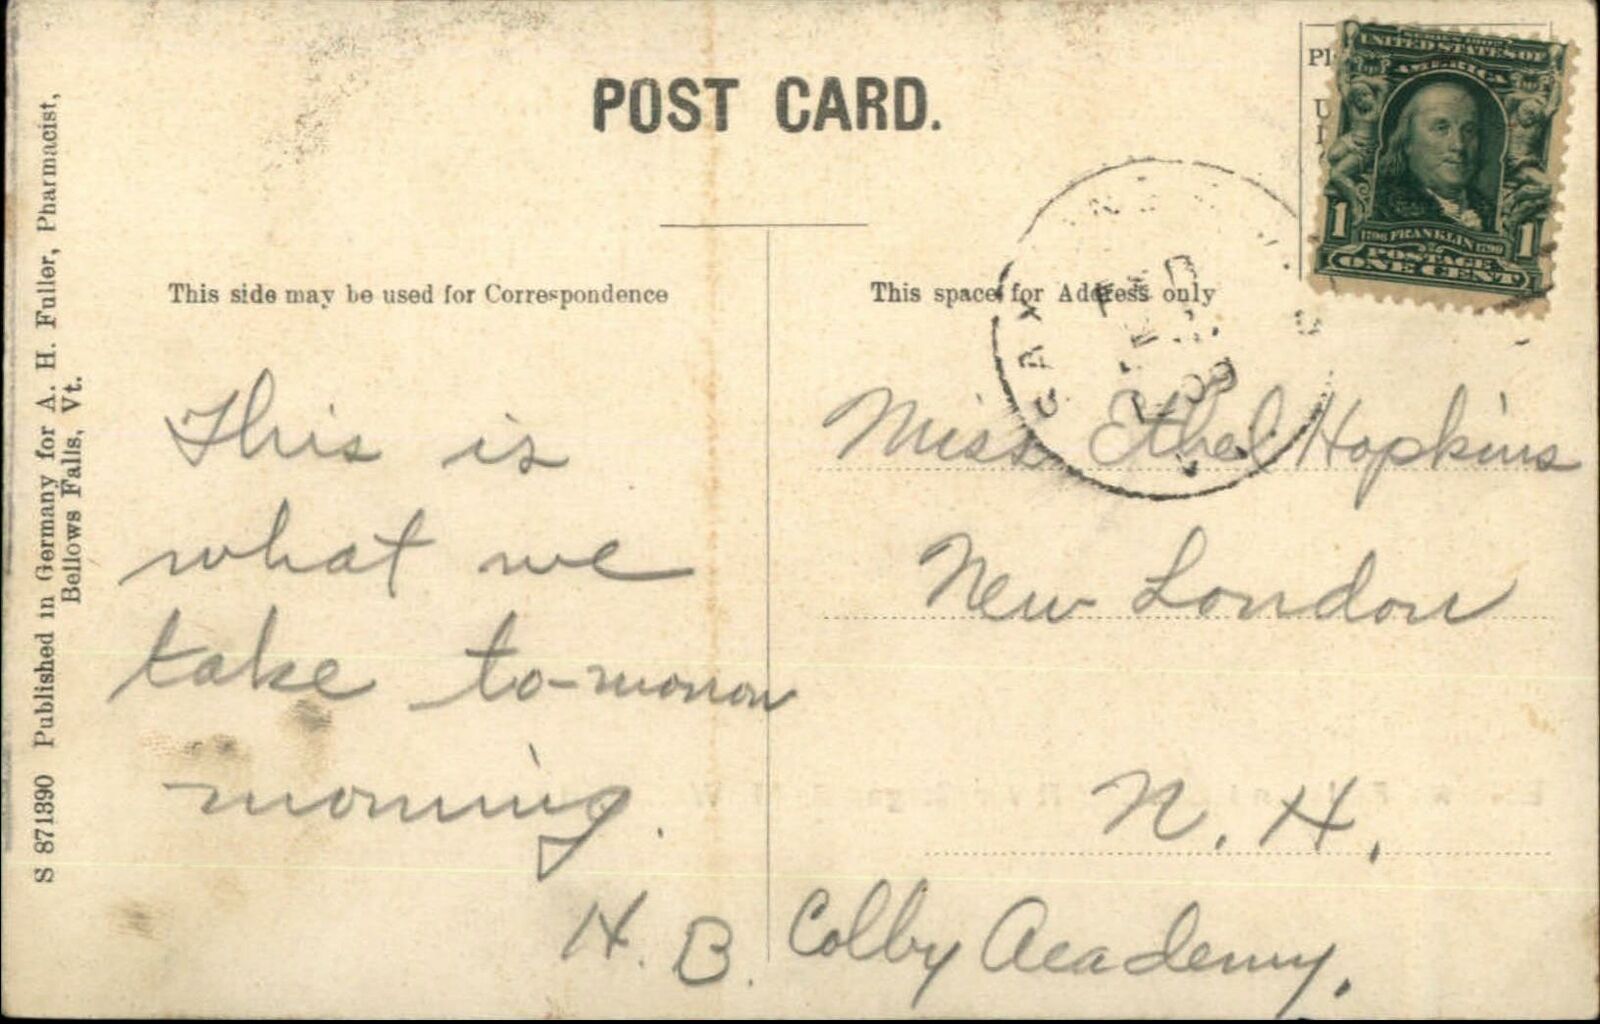 POST CARD.
This side may be used for Correspondence
This space for Address only
SERIES 1902
UNITED STATES OF
AMERICA
1 1
FRANKLIN
POSTAGE
ONE CENT
09
This is
what we
take to-morrow
morning.
H. B.
Miss Ethel Hopkins
New London
N. H.
Colby Academy.
S 871390 Published in Germany for A. H. Fuller, Pharmacist,
Bellows Falls, Vt.